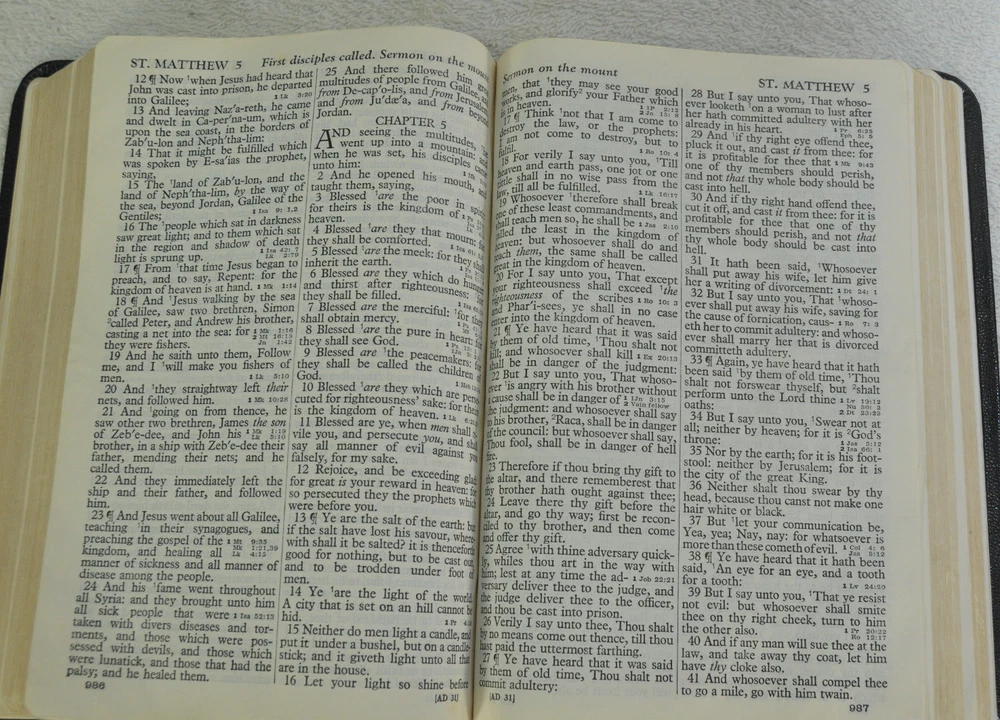 ST. MATTHEW 5 First disciples called. Sermon on the mount
12 ¶ Now ¹when Jesus had heard that
John was cast into prison, he departed
into Galilee; 1 Lk 3:20
13 And leaving Naz′a-reth, he came
and dwelt in Ca-per′na-um, which is
upon the sea coast, in the borders of
Zab′u-lon and Neph′tha-lim:
14 That it might be fulfilled which
was spoken by E-sa′ias the prophet,
saying,
15 The ¹land of Zab′u-lon, and the
land of Neph′tha-lim, by the way of
the sea, beyond Jordan, Galilee of the
Gentiles; 1 Isa 9:1,2
16 The ¹people which sat in darkness
saw great light; and to them which sat
in the region and shadow of death
light is sprung up. 1 Isa 42:7
Lk 2:79
17 ¶ From ¹that time Jesus began to
preach, and to say, Repent: for the
kingdom of heaven is at hand. 1 Mk 1:14
18 ¶ And ¹Jesus walking by the sea
of Galilee, saw two brethren, Simon
²called Peter, and Andrew his brother,
casting a net into the sea: for 1 Mk 1:16
they were fishers. Jn 1:42
19 And he saith unto them, Follow
me, and I ¹will make you fishers of
men. 1 Lk 5:10
20 And ¹they straightway left their
nets, and followed him. 1 Mk 10:28
21 And ¹going on from thence, he
saw other two brethren, James the son
of Zeb′e-dee, and John his 1 Mk 1:19
Lk 5:10
brother, in a ship with Zeb′e-dee their
father, mending their nets; and he
called them.
22 And they immediately left the
ship and their father, and followed
him.
23 ¶ And Jesus went about all Galilee,
teaching ¹in their synagogues, and
preaching the gospel of the 1 Mt 9:35
kingdom, and healing all Mk 1:21,39
Lk 4:15
manner of sickness and all manner of
disease among the people.
24 And his ¹fame went throughout
all Syria: and they brought unto him
all sick people that were 1 Isa 52:13
taken with divers diseases and tor-
ments, and those which were pos-
sessed with devils, and those which
were lunatick, and those that had the
palsy; and he healed them.
986
25 And there followed him great
multitudes of people from Galilee, and
from De-cap′o-lis, and from Jerusalem,
and from Ju′dæ′a, and from beyond
Jordan.
CHAPTER 5
AND seeing the multitudes, he
went up into a mountain: and
when he was set, his disciples came
unto him:
2 And he opened his mouth, and
taught them, saying,
3 Blessed ¹are the poor in spirit:
for theirs is the kingdom of
heaven.
4 Blessed ¹are they that mourn: for
they shall be comforted. 1 Isa 61:
5 Blessed ¹are the meek: for they shall
inherit the earth.
6 Blessed are they which do hunger
and thirst after righteousness: for
they shall be filled.
7 Blessed are the merciful: ¹for they
shall obtain mercy.
8 Blessed ¹are the pure in heart: for
they shall see God.
9 Blessed are ¹the peacemakers: for
they shall be called the children of
God.
10 Blessed ¹are they which are perse-
cuted for righteousness' sake: for theirs
is the kingdom of heaven.
11 Blessed are ye, when men shall re-
vile you, and persecute you, and shall
say all manner of evil against you
falsely, for my sake.
12 Rejoice, and be exceeding glad:
for great is your reward in heaven: for
so persecuted they the prophets which
were before you.
13 ¶ Ye are the salt of the earth: but
if the salt have lost his savour, where-
with shall it be salted? it is thenceforth
good for nothing, but to be cast out,
and to be trodden under foot of
men.
14 Ye ¹are the light of the world.
A city that is set on an hill cannot be
hid. 1 Pr
15 Neither do men light a candle, and
put it under a bushel, but on a candle-
stick; and it giveth light unto all that
are in the house.
16 Let your light so shine before
[AD 31]
Sermon on the mount
men, that ¹they may see your good
works, and glorify² your Father which
is in heaven. 1 1P 2:12
2 Jn 15:8
17 ¶ Think ¹not that I am come to
destroy the law, or the prophets:
I am not come to destroy, but to
fulfil. 1 Ro 10:4
18 For verily I say unto you, ¹Till
heaven and earth pass, one jot or one
tittle shall in no wise pass from the
law, till all be fulfilled. 1 Lk 16:17
19 Whosoever ¹therefore shall break
one of these least commandments, and
shall teach men so, he shall be 1 Jas 2:10
called the least in the kingdom of
heaven: but whosoever shall do and
teach them, the same shall be called
great in the kingdom of heaven.
20 For I say unto you, That except
your righteousness shall exceed ¹the
righteousness of the scribes 1 Ro 10:3
and Phar′i-sees, ye shall in no case
enter into the kingdom of heaven.
21 ¶ Ye have heard that it was said
by them of old time, ¹Thou shalt not
kill; and whosoever shall kill 1 Ex 20:13
shall be in danger of the judgment:
22 But I say unto you, That whoso-
ever ¹is angry with his brother without
a cause shall be in danger of 1 1Jn 3:15
2 Vain fellow
the judgment: and whosoever shall say
to his brother, ²Raca, shall be in danger
of the council: but whosoever shall say,
Thou fool, shall be in danger of hell
fire.
23 Therefore if thou bring thy gift to
the altar, and there rememberest that
thy brother hath ought against thee;
24 Leave there thy gift before the
altar, and go thy way; first be recon-
ciled to thy brother, and then come
and offer thy gift.
25 Agree ¹with thine adversary quick-
ly, whiles thou art in the way with
him; lest at any time the ad- 1 Job 22:21
versary deliver thee to the judge, and
the judge deliver thee to the officer,
and thou be cast into prison.
26 Verily I say unto thee, Thou shalt
by no means come out thence, till thou
hast paid the uttermost farthing.
27 ¶ Ye have heard that it was said
by them of old time, Thou shalt not
commit adultery:
[AD 31]
ST. MATTHEW 5
28 But I say unto you, That whoso-
ever looketh ¹on a woman to lust after
her hath committed adultery with her
already in his heart. 1 Pr 6:25
Eph 5:5
29 And ¹if thy right eye offend thee,
pluck it out, and cast it from thee: for
it is profitable for thee that 1 Mk 9:43
one of thy members should perish,
and not that thy whole body should be
cast into hell.
30 And if thy right hand offend thee,
cut it off, and cast it from thee: for it is
profitable for thee that one of thy
members should perish, and not that
thy whole body should be cast into
hell.
31 It hath been said, ¹Whosoever
shall put away his wife, let him give
her a writing of divorcement: 1 Dt 24:1
32 But I say unto you, That ¹whoso-
ever shall put away his wife, saving for
the cause of fornication, caus- 1 Ro 7:3
eth her to commit adultery: and whoso-
ever shall marry her that is divorced
committeth adultery.
33 ¶ Again, ye have heard that it hath
been said ¹by them of old time, ¹Thou
shalt not forswear thyself, but ²shalt
perform unto the Lord thine 1 Lv 19:12
Nu 30:2
oaths: 2 Dt 23:23
34 But I say unto you, ¹Swear not at
all; neither by heaven; for it is ²God's
throne: 1 Jas 5:12
2 Isa 66:1
35 Nor by the earth; for it is his foot-
stool: neither by Jerusalem; for it is
the city of the great King.
36 Neither shalt thou swear by thy
head, because thou canst not make one
hair white or black.
37 But ¹let your communication be,
Yea, yea; Nay, nay: for whatsoever is
more than these cometh of evil. 1 Col 4:6
Jas 5:12
38 ¶ Ye have heard that it hath been
said, ¹An eye for an eye, and a tooth
for a tooth: 1 Lv 24:20
39 But I say unto you, ¹That ye resist
not evil: but whosoever shall smite
thee on thy right cheek, turn to him
the other also. 1 Pr 20:22
Ro 12:17
40 And if any man will sue thee at the
law, and take away thy coat, let him
have thy cloke also.
41 And whosoever shall compel thee
to go a mile, go with him twain.
987